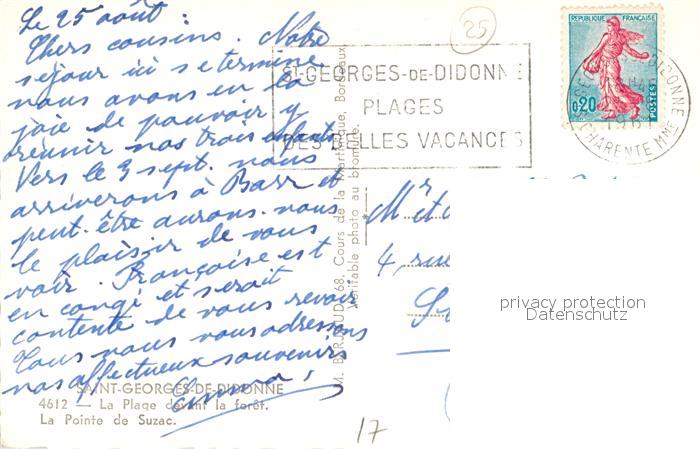 Le 25 août :
Chers cousins. Notre
séjour ici se termine
nous avons eu la
joie de pouvoir y
réunir nos trois enfants
Vers le 3 sept. nous
arriverons à Barr et
peut-être aurons-nous
le plaisir de vous
voir. Françoise est
en congé et serait
contente de vous revoir.
Tous nous vous adressons
nos affectueux souvenirs
SAINT-GEORGES-DE-DIDONNE
4612 — La Plage devant la forêt.
La Pointe de Suzac.
25
ST-GEORGES-DE-DIDONNE
PLAGES
DES BELLES VACANCES
REPUBLIQUE FRANÇAISE
0,20
POSTES
CHARENTE MME
68, Cours de la Martinique, Bordeaux.
Véritable photo au bromure.
Mr et
4 rue
privacy protection
Datenschutz
17